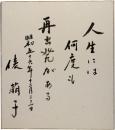 人生には
何度も
再出発がある
昭和五十六年十二月二十二日
俵萠子